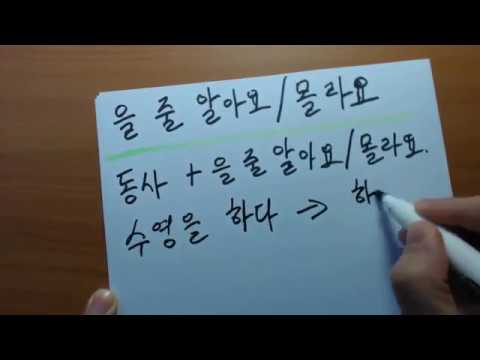 을 줄 알아요/몰라요
동사 + 을 줄 알아요/몰라요.
수영을 하다 → 하